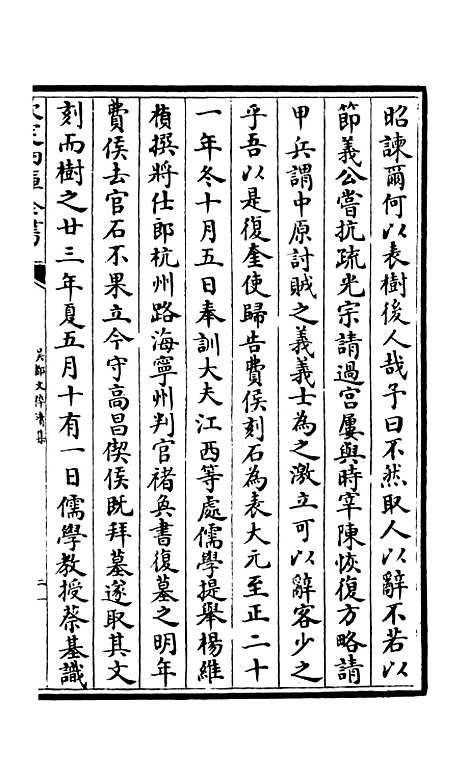 昭諫爾何以表樹後人哉子曰不然取人以辭不若以
節義公嘗抗疏光宗請過宮屢與時宰陳恢復方略請
甲兵謂中原討賊之義義士為之激立可以辭客少之
乎吾以是復奎使歸告費侯刻石為表大元至正二十
一年冬十月五日奉訓大夫江西等處儒學提舉楊維
楨撰將仕郎杭州路海寧州判官褚奐書復墓之明年
費侯去官石不果立今守高昌偰侯既拜墓遂取其文
刻而樹之廿三年夏五月十有一日儒學教授蔡基識
欽定四庫全書
吳都文粹續集